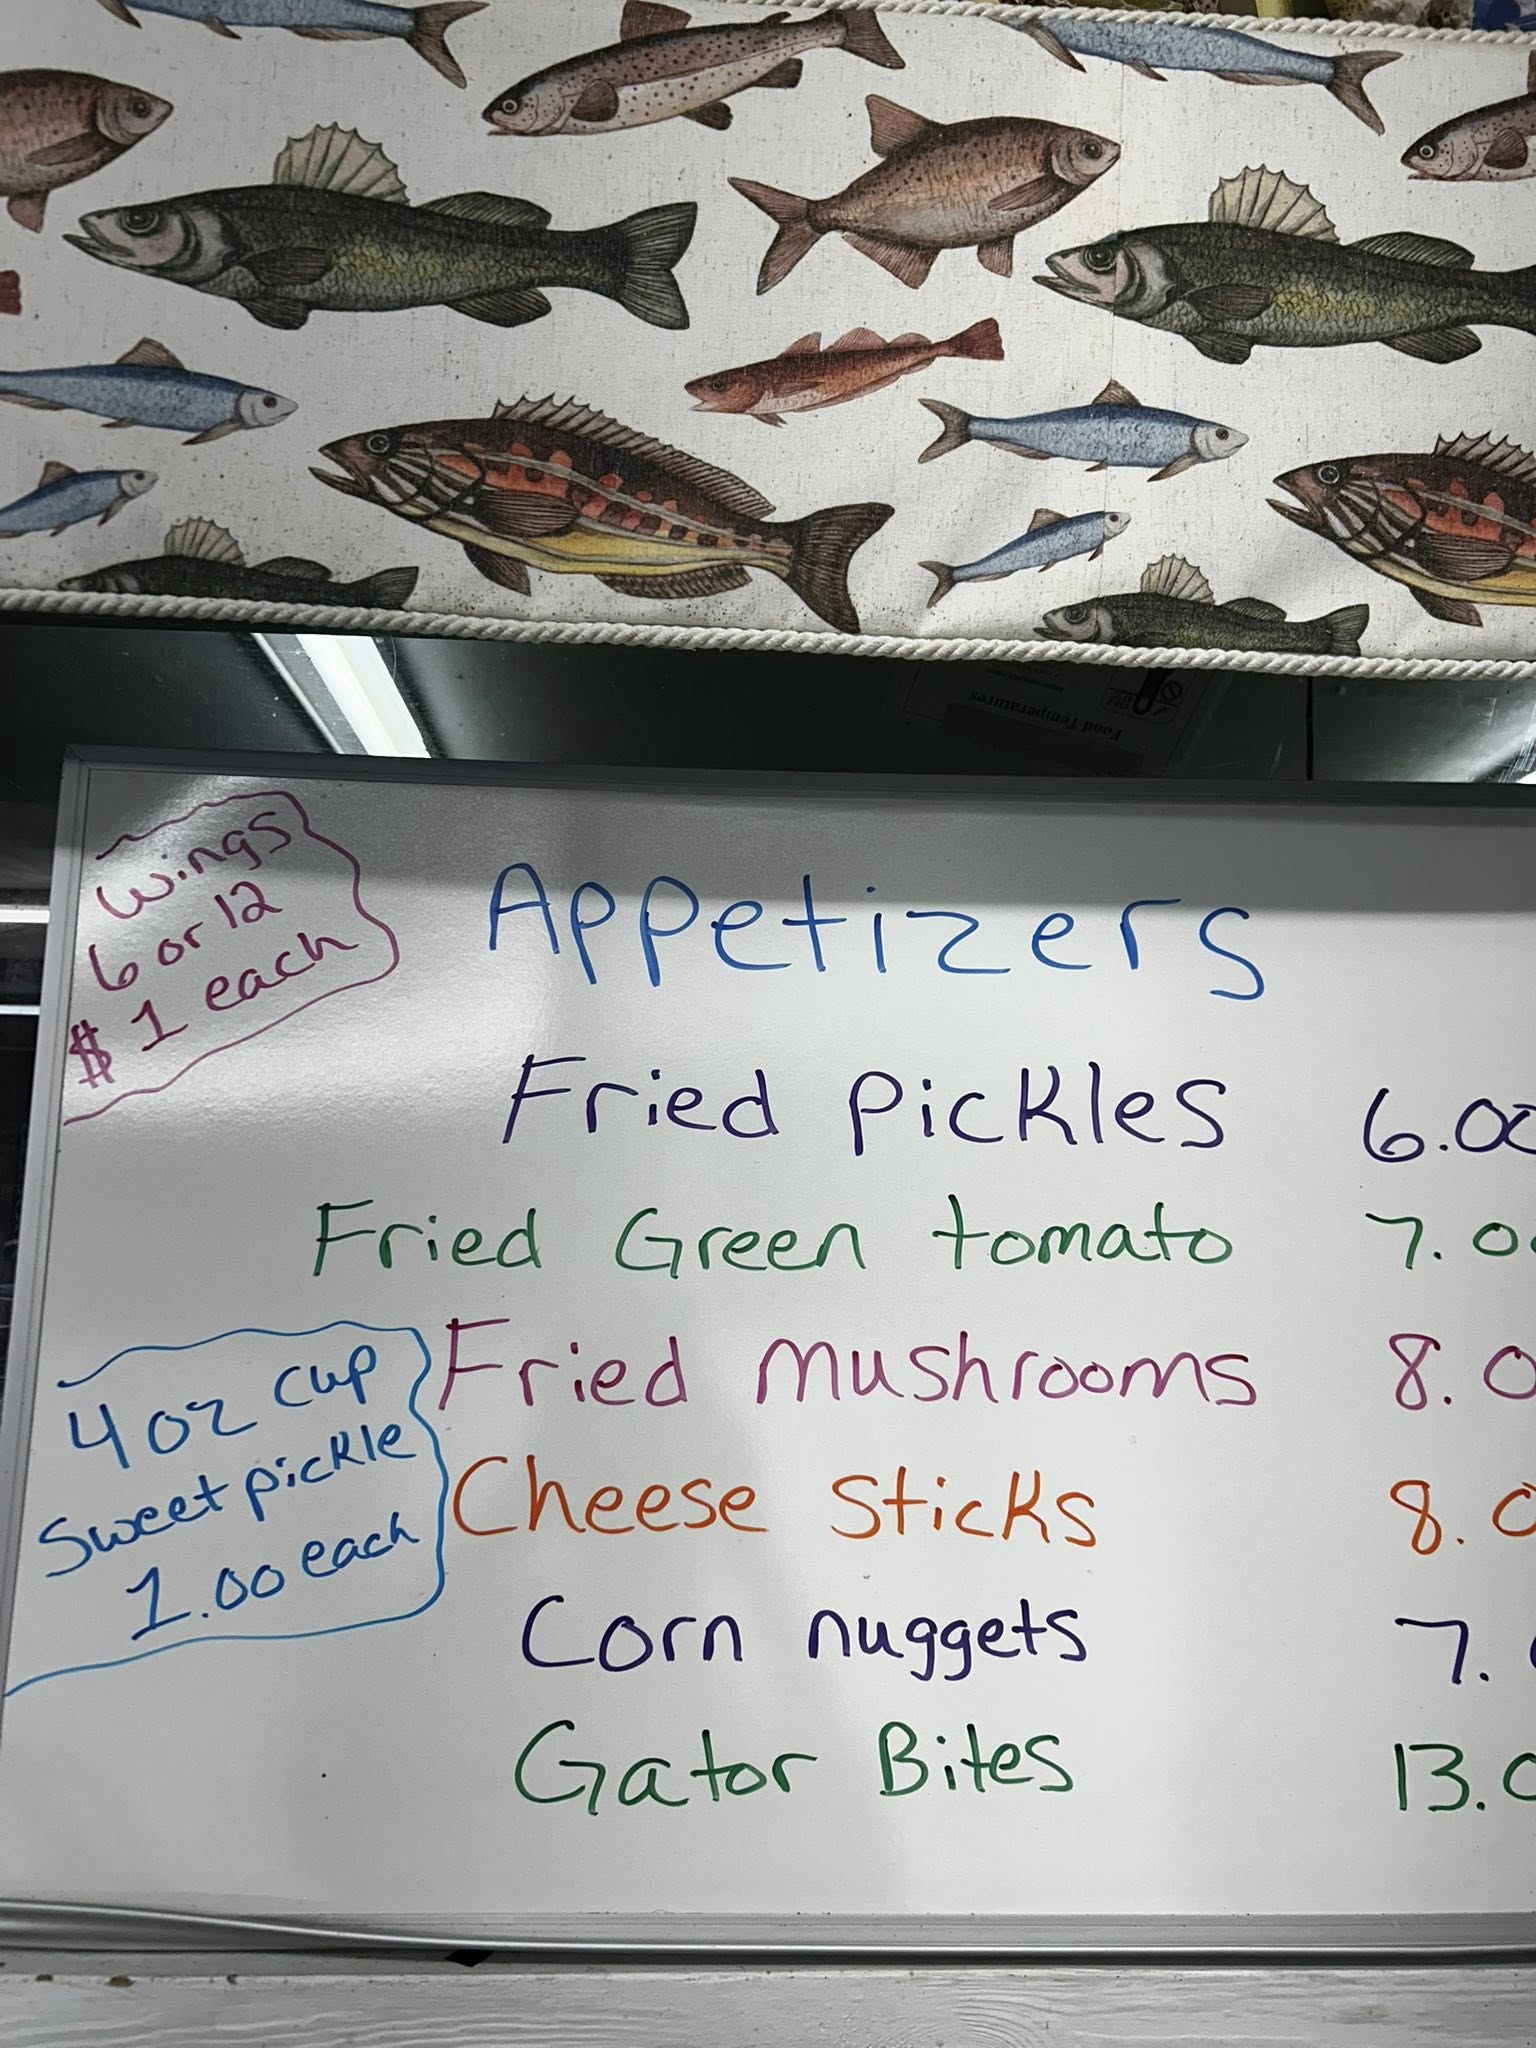 Food Temperatures
Wings
6 or 12
$1 each
Appetizers
Fried Pickles 6.00
Fried Green tomato 7.00
Fried mushrooms 8.0
Cheese Sticks 8.0
Corn nuggets 7.
Gator Bites 13.0
4 oz cup
Sweet pickle
1.00 each